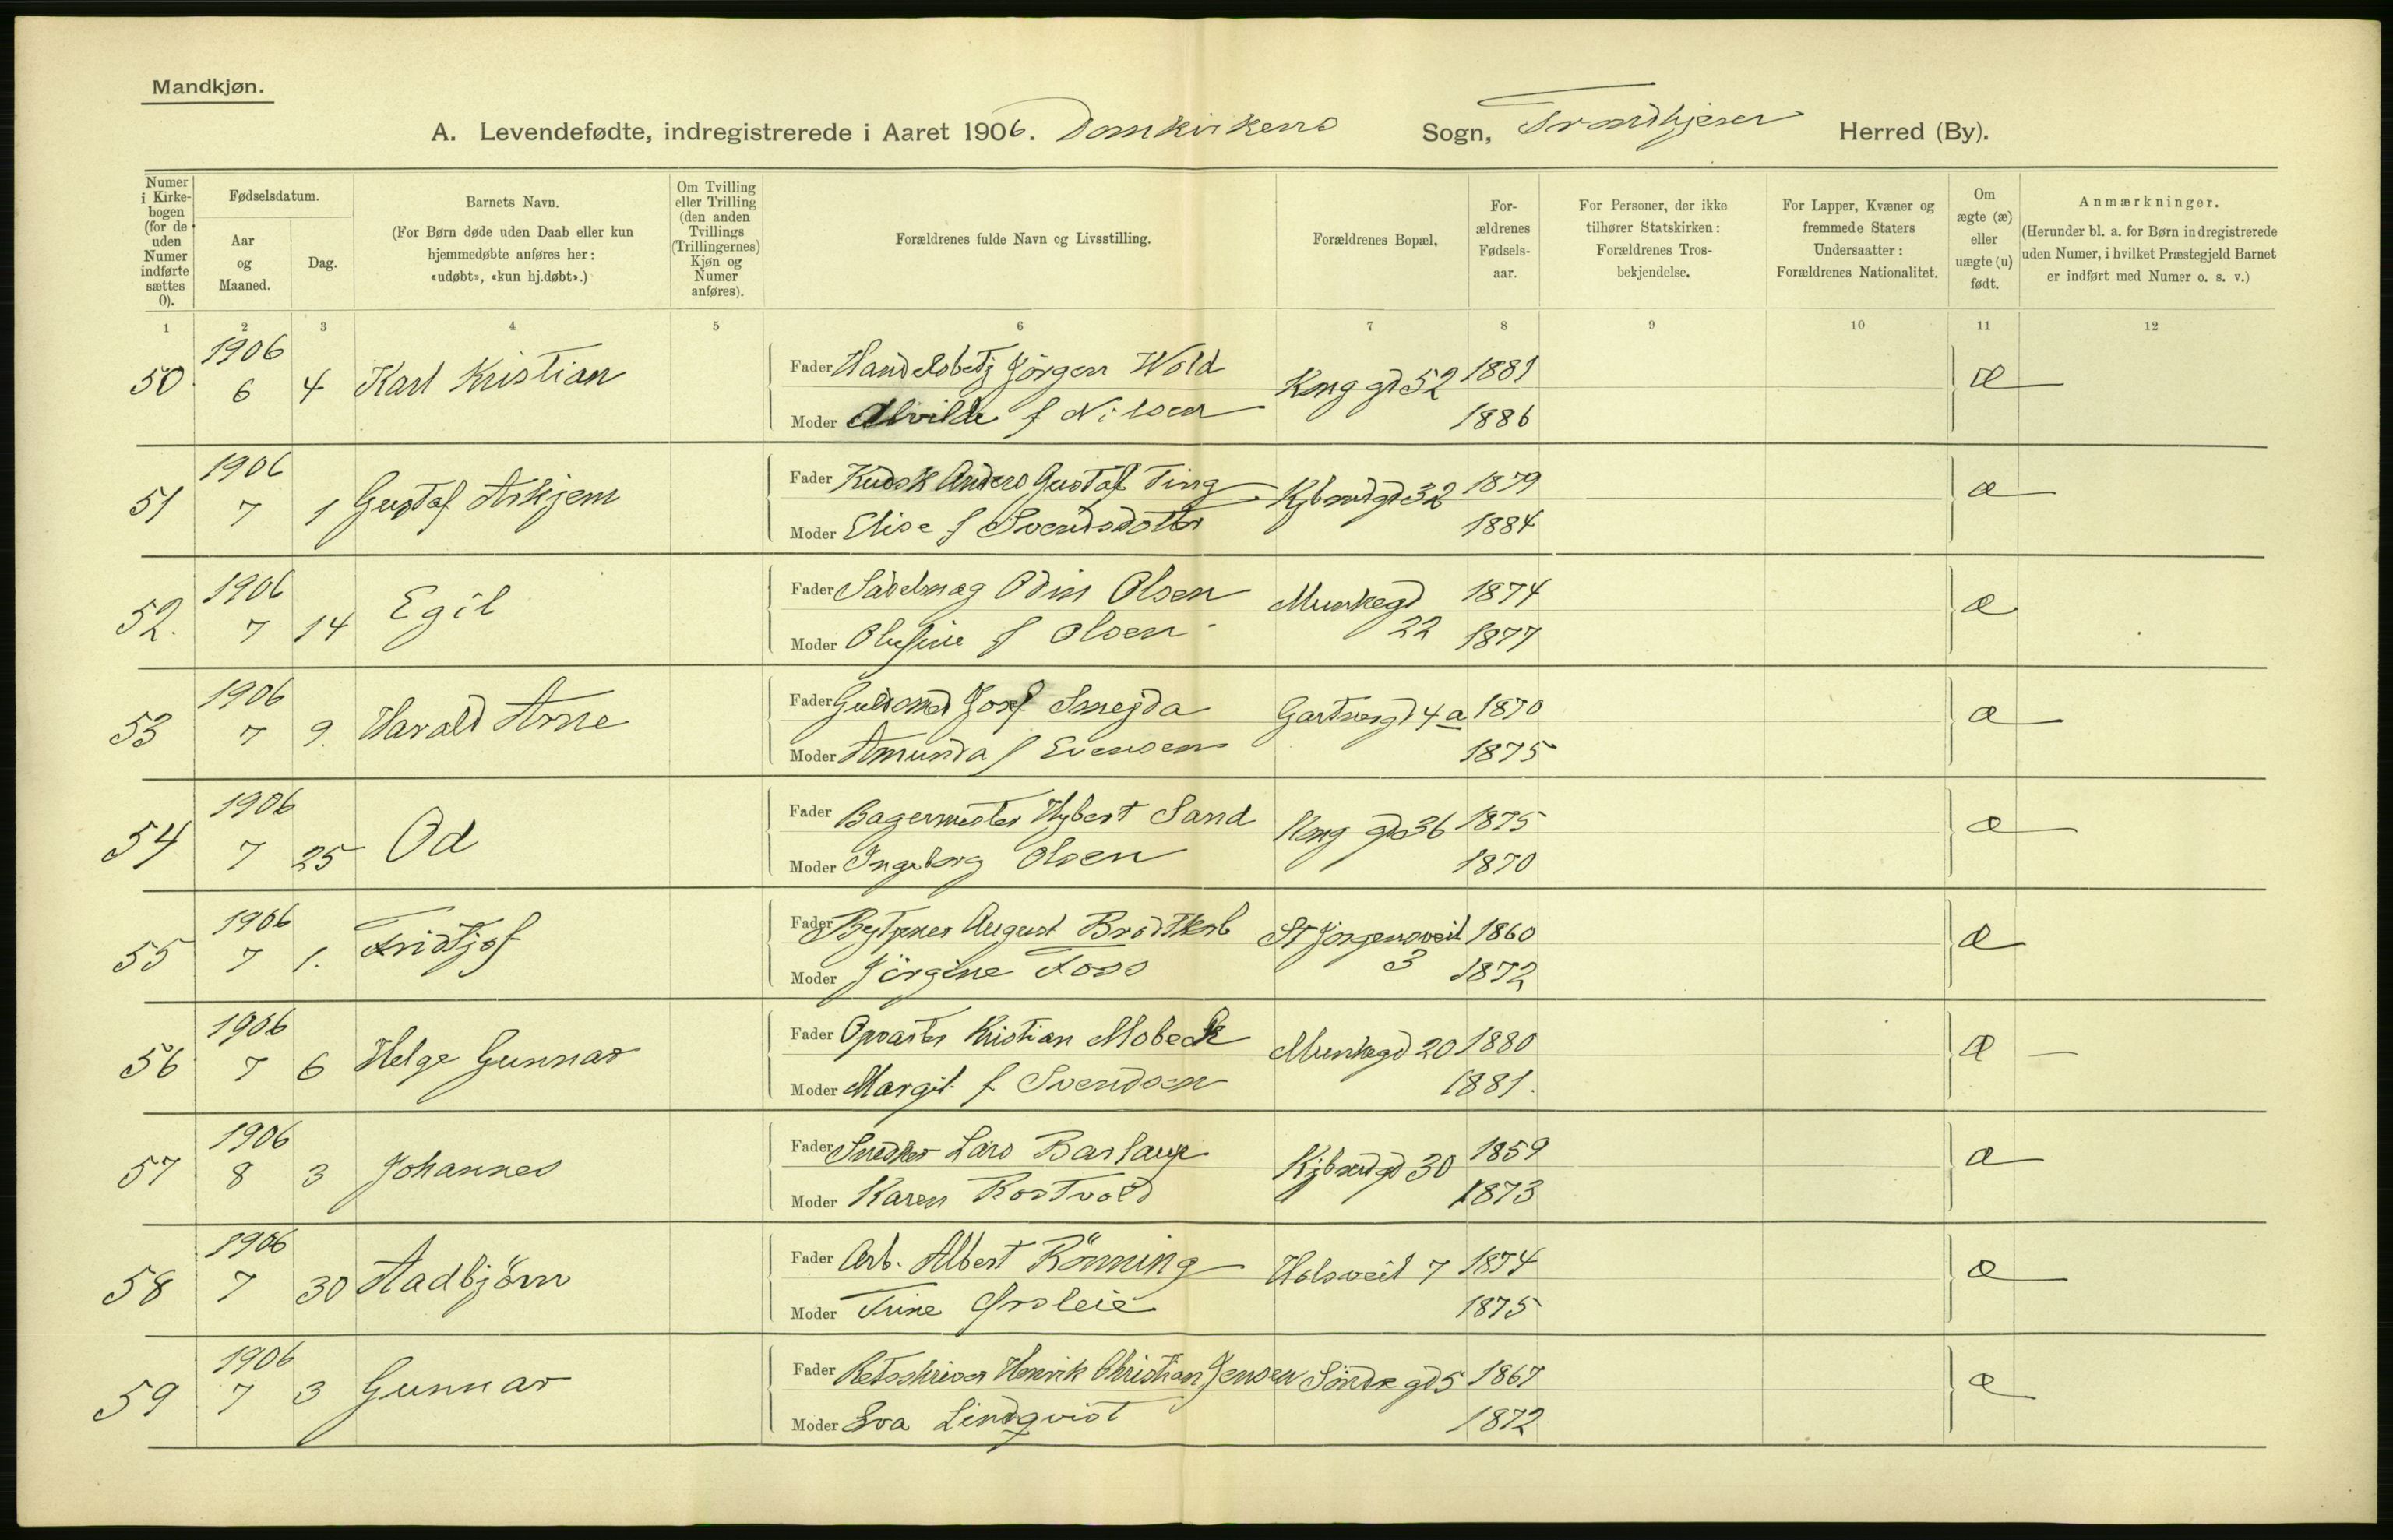 Mandkjøn.
A. Levendefødte, indregistrerede i Aaret 1906. Domkirkens Sogn, Trondhjem Herred (By).
Numer i Kirkebogen (for de uden Numer indførte sættes 0).
Fødselsdatum.
Aar og Maaned.
Dag.
Barnets Navn.
(For Børn døde uden Daab eller kun hjemmedøbte anføres her: «udøbt», «kun hj.døbt».)
Om Tvilling eller Trilling (den anden Tvillings (Trillingernes) Kjøn og Numer anføres).
Forældrenes fulde Navn og Livsstilling.
Forældrenes Bopæl,
Forældrenes Fødselsaar.
For Personer, der ikke tilhører Statskirken: Forældrenes Trosbekjendelse.
For Lapper, Kvæner og fremmede Staters Undersaatter: Forældrenes Nationalitet.
Om ægte (æ) eller uægte (u) født.
Anmærkninger.
(Herunder bl. a. for Børn indregistrerede uden Numer, i hvilket Præstegjeld Barnet er indført med Numer o. s. v.)
1 2 3 4 5 6 7 8 9 10 11 12
50 1906 6 4 Karl Kristian Fader Handelsbetj Jörgen Wold Kong gd 52 1881 æ
Moder Alvilde f Nilsen 1886
51 1906 7 1 Gustaf Askjem Fader Kudsk Anders Gustaf Ting Kjbmdgd 32 1879 æ
Moder Elise f Svendsdotter 1884
52. 1906 7 14 Egil Fader Sadelmag Odin Olsen Munkegd 22 1874 æ
Moder Olufine f Olsen 1877
53 1906 7 9. Harald Arne Fader Guldsmed Josef Smejda Gartnergd 4 a 1870 æ
Moder Amunda f Evensen 1875
54 1906 7 25 Od Fader Bagermester Hybert Sand Kong gd 36 1875 æ
Moder Ingeborg Olsen 1870
55 1906 7 1. Fridtjof Fader August Brodtkorb St Jörgensveit 3 1860 æ
Moder Jörgine Foss 1872
56 1906 7 6 Helge Gunnar Fader Opvarter Kristian Mobeck Munkegd 20 1880 æ
Moder Margit f Svendsen 1881.
57 1906 8 3 Johannes Fader Snedker Lars Barlaup Kjbmdgd 30 1859 æ
Moder Karen Rostvold 1873
58 1906 7 30 Aadbjörn Fader Arb. Albert Rönning Holsveit 7 1874 æ
Moder Trine 1875
59 1906 7 3 Gunnar Fader Retsskriver Henrik Christian Jensen Söndre gd 5 1867 æ
Moder Eva Lindqvist 1872